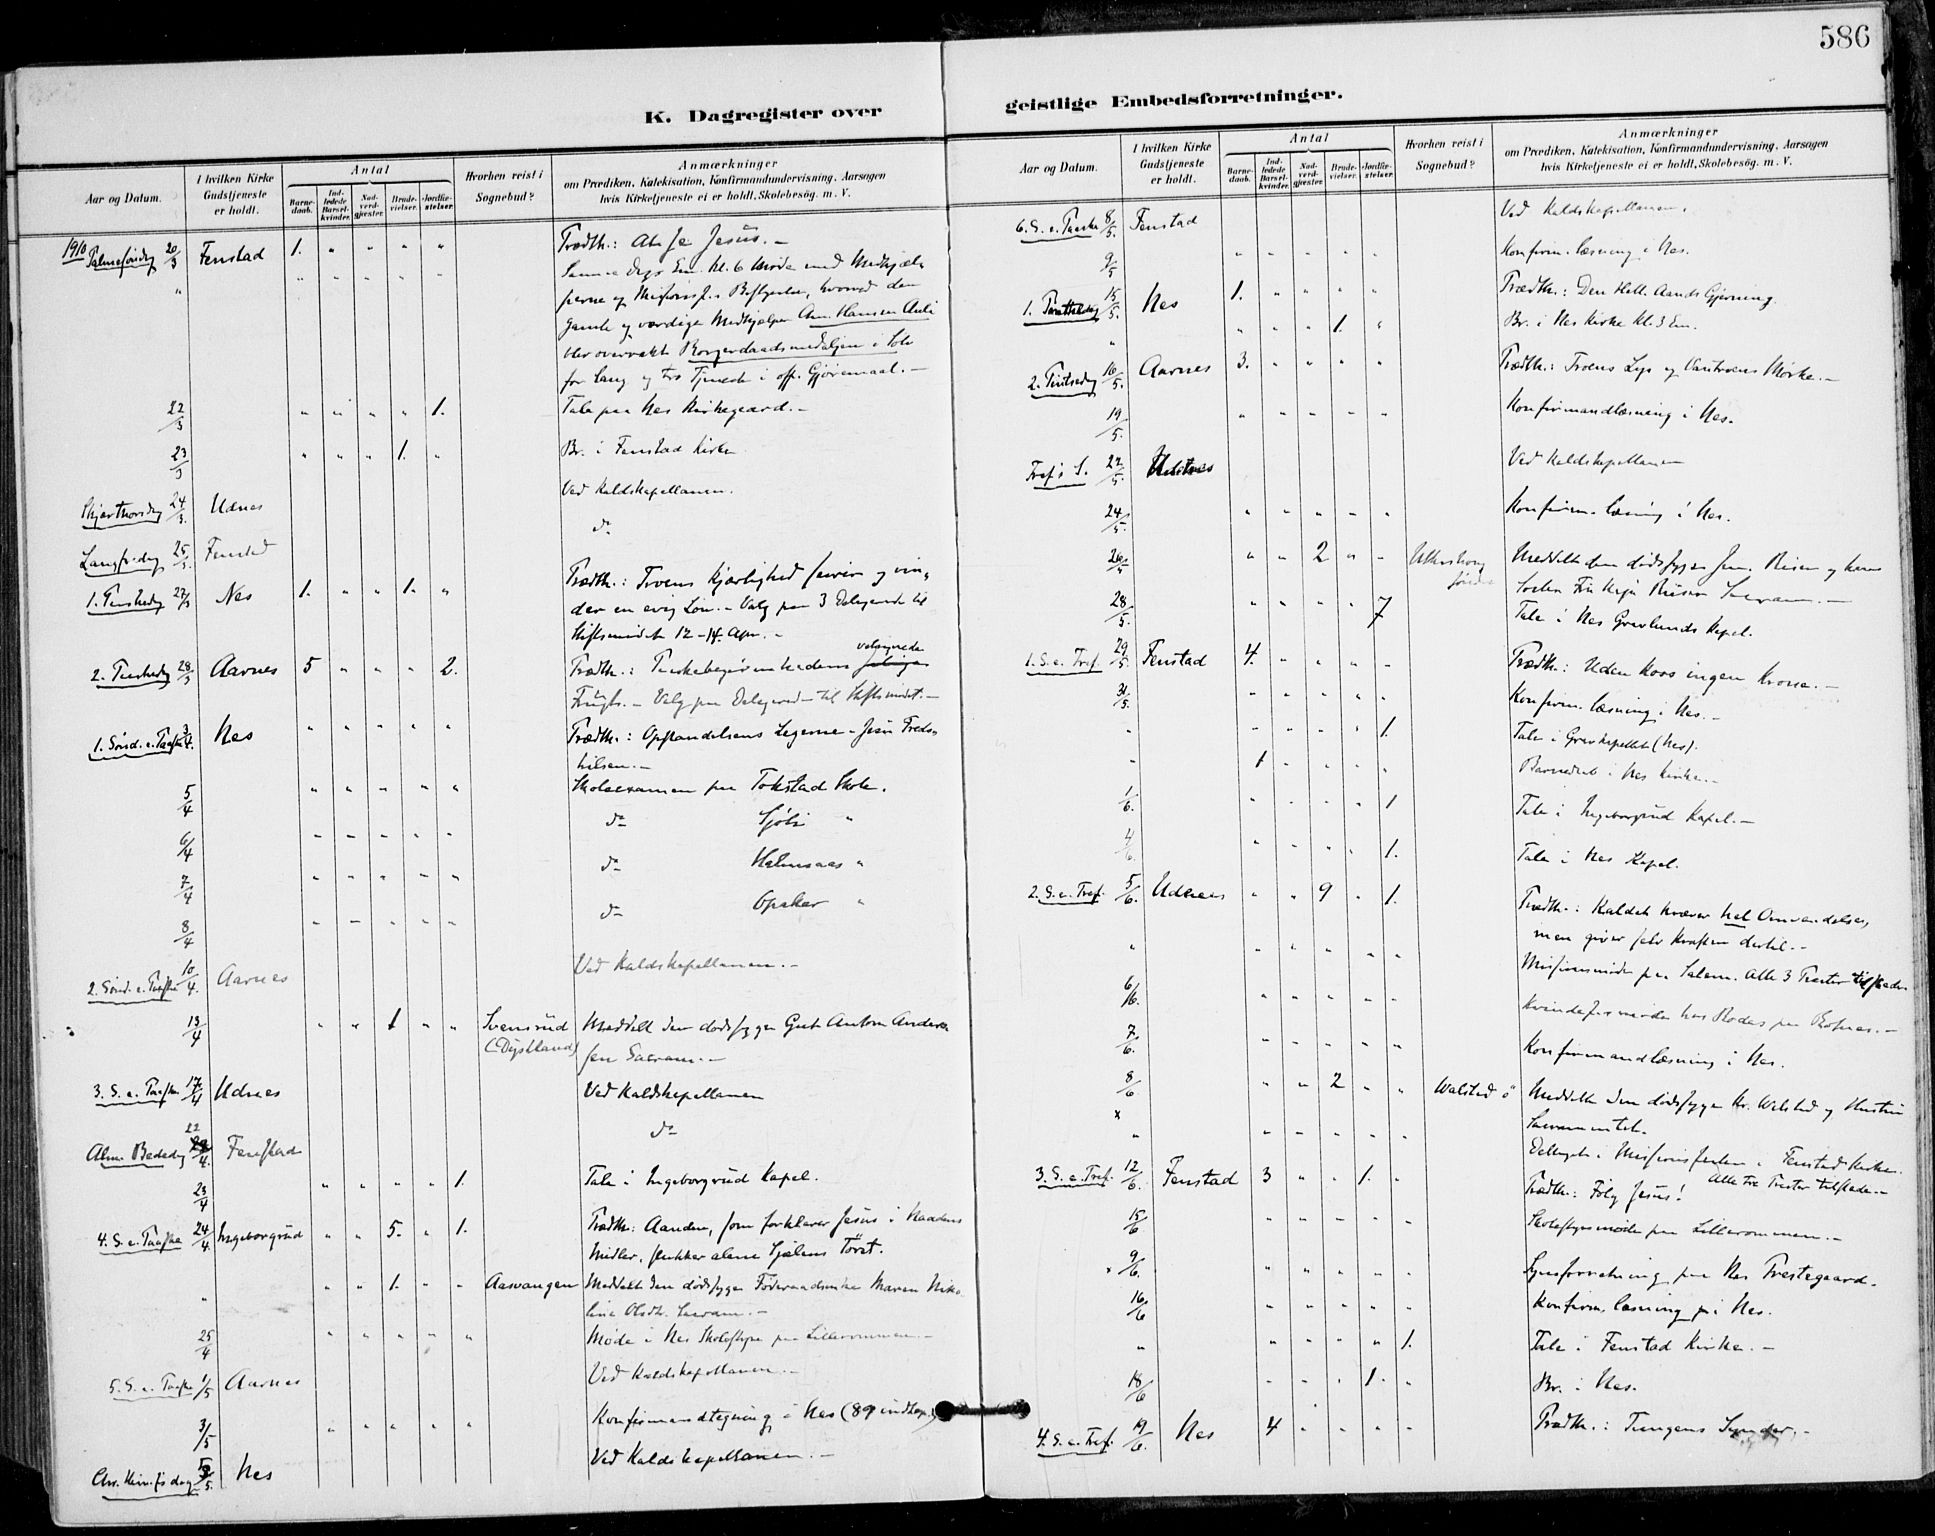 586
K. Dagregister over
geistlige Embedsforretninger.
Aar og Datum.
I hvilken Kirke Gudstjeneste er holdt.
Antal
Barnedaab.
Indledede Barselkvinder.
Nadverdgjester.
Brudevielser.
Jordfæstelser.
Hvorhen reist i Sognebud?
Anmærkninger
om Prædiken, Katekisation, Konfirmandundervisning, Aarsagen
hvis Kirketjeneste ei er holdt, Skolebesøg. m. V.
1910 Palmesøndag 20/3 Fenstad 1. " " " " Prædk.: At se Jesus.-
" " " " " " Samme Dags Em. Kl. 6 Møde med Medhjæl-
perne og Bestyrelse, hvorved den
gamle og værdige Medhjælper Am. Hansen Auli
blev overrakt Borgerdaadsmedaljen i Sølv
for lang og tro Tjeneste i off. Gjøremaal.-
22/3 " " " " 1. Tale paa Nes Kirkegaard.-
23/3 " " " 1. " Br. i Fenstad Kirke
Skjærthorsdag 24/3. Udnes Ved Kaldskapellanen.
Langfredag 25/3. Fenstad do
1. Paaskedag 27/3 Nes 1. " " 1. " Prædk.: Troens Kjærlighed og vin-
der en evig Løn.- Valg paa 3 Delegerede til
Stiftsmødet 12-14. Apr.-
2. Paaskedag 28/3 Aarnes 5 " " " 2. Prædk.: velsignede
Frugt.- Valg paa Delegered til Stiftsmødet.-
1. Sønd. e. Paaske 3/4. Nes " " " " " Prædk.: Opstandelsens Legeme - Jesu Freds-
hilsen.-
5/4 " " " " " Skoleexamen paa Tokstad Skole.
6/4 " " " " " do Sjøli "
7/4 " " " " " do Helmsaas "
8/4 " " " " " do Opaker "
2. Sønd. e. Paaske 10/4. Aarnes Ved Kaldskapellanen.-
13/4 " " 1 " " Svensrud Meddelt den dødssyge Gut Anton Ander-
(Dystland) sen Sacram.-
3. S. e. Paaske 17/4 Udnes Ved Kaldskapellanen
Alm. Bededag 22/4. Fenstad do
23/4 " " " " 1. Tale i Ingeborgrud Kapel.
4. S. e. Paaske 24/4. Ingeborgrud " " 5. " 1. Prædk.: Aanden, som forklarer Jesus i Naadens
Midler, slukker alene Sjælens Tørst.
" " " 1. " " Aasvangen Meddelt den dødssyge Føderaadsenke Maren Niko-
line Olsdtr. Sacram.-
25/4 " " " " " Møde i Nes Skolestyre paa Lillerommen.-
5. S. e. Paaske 1/5 Aarnes Ved Kaldskapellanen.-
3/5 " " " " " Konfirmandtegning i Nes (89 indtegn.)
Chr. Himf.sdag 5/5. Nes Ved Kaldskapellanen.-
Aar og Datum.
I hvilken Kirke Gudstjeneste er holdt.
Antal
Barnedaab.
Indledede Barselkvinder.
Nadverdgjester.
Brudevielser.
Jordfæstelser.
Hvorhen reist i Sognebud?
Anmærkninger
om Prædiken, Katekisation, Konfirmandundervisning, Aarsagen
hvis Kirketjeneste ei er holdt, Skolebesøg. m. V.
6. S. e. Paaske 8/5. Fenstad Ved Kaldskapellanen.
9/5 " " " " " Konfirm. læsning i Nes.
1. Pinsedag 15/5. Nes 1. " " " " Prædk.: Den Hell. Aands Gjerning.
" " " " 1. " Br. i Nes Kirke Kl. 3 Em.
2. Pintsedag 16/5. Aarnes 3. " " " " Prædk.: Troens Lys og Vantroens Mørke.-
19/5. " " " " " Konfirmandlæsning i Nes.
Tref.s S. 22/5. Udnes Ved Kaldskapellanen
24/5. " " " " " Konfirm. læsning i Nes.
26/5 " " 2 " " Meddelt den dødssyge Riser og hans
Søster Frk Riser Sacram.-
28/5. " " " " 7 Tale i Nes Gravlunds Kapel.
1. S. e. Tref. 29/5. Fenstad 4. " " " " Prædk.: Uden Kors ingen Krone.-
31/5. " " " " " Konfirm. læsning i Nes.-
" " " " " 1. Tale i Gravkapellet (Nes).
" 1 " " " " Barnedaab i Nes Kirke.-
1/6. " " " " 1 Tale i Ingeborgrud Kapel.-
4/6. " " " " 1. Tale i Nes Kapel.
2. S. e. Tref. 5/6. Udnes " " 9 " 1. Prædk.: Kaldet kræver hel Omvendelse,
men giver selv Kraften dertil.-
" " " " " " Missionsmøde paa Salem. Alle 3 Prester tilstede
6/6. " " " " " hos Rodes paa Rosnes.-
7/6. " " " " " Konfirmandlæsning i Nes.
8/6 " " 2 " " Walstad ö Meddelt den dødssyge Kr. Walstad og Hustru
Sacramentet.
× " " " " " " Deltaget i Missionsfesten i Fenstad Kirke.
Alle tre Prester tilstede.-
3. S. e. Tref. 12/6. Fenstad 3 " " 1. " Prædk.: Følg Jesus!
15/6 " " " " " Skolestyremøde paa Lillerommen.-
× 9/6. " " " " " Synsforretning paa Nes Prestegaard.
16/6 " " " " " Konfirm. læsning i Nes.
" " " " " 1. Tale i Fenstad Kirke.-
18/6 " " " 1. " Br. i Nes.
4. S. e. Tref. 19/6. Nes 4 " " " " Prædk.: Tungens Synder.-